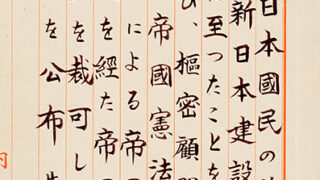 日本國民の
新日本建設
に至つたことを
び、樞密顧問
帝國憲法
による帝
を經た帝
を裁可し
を公布せ